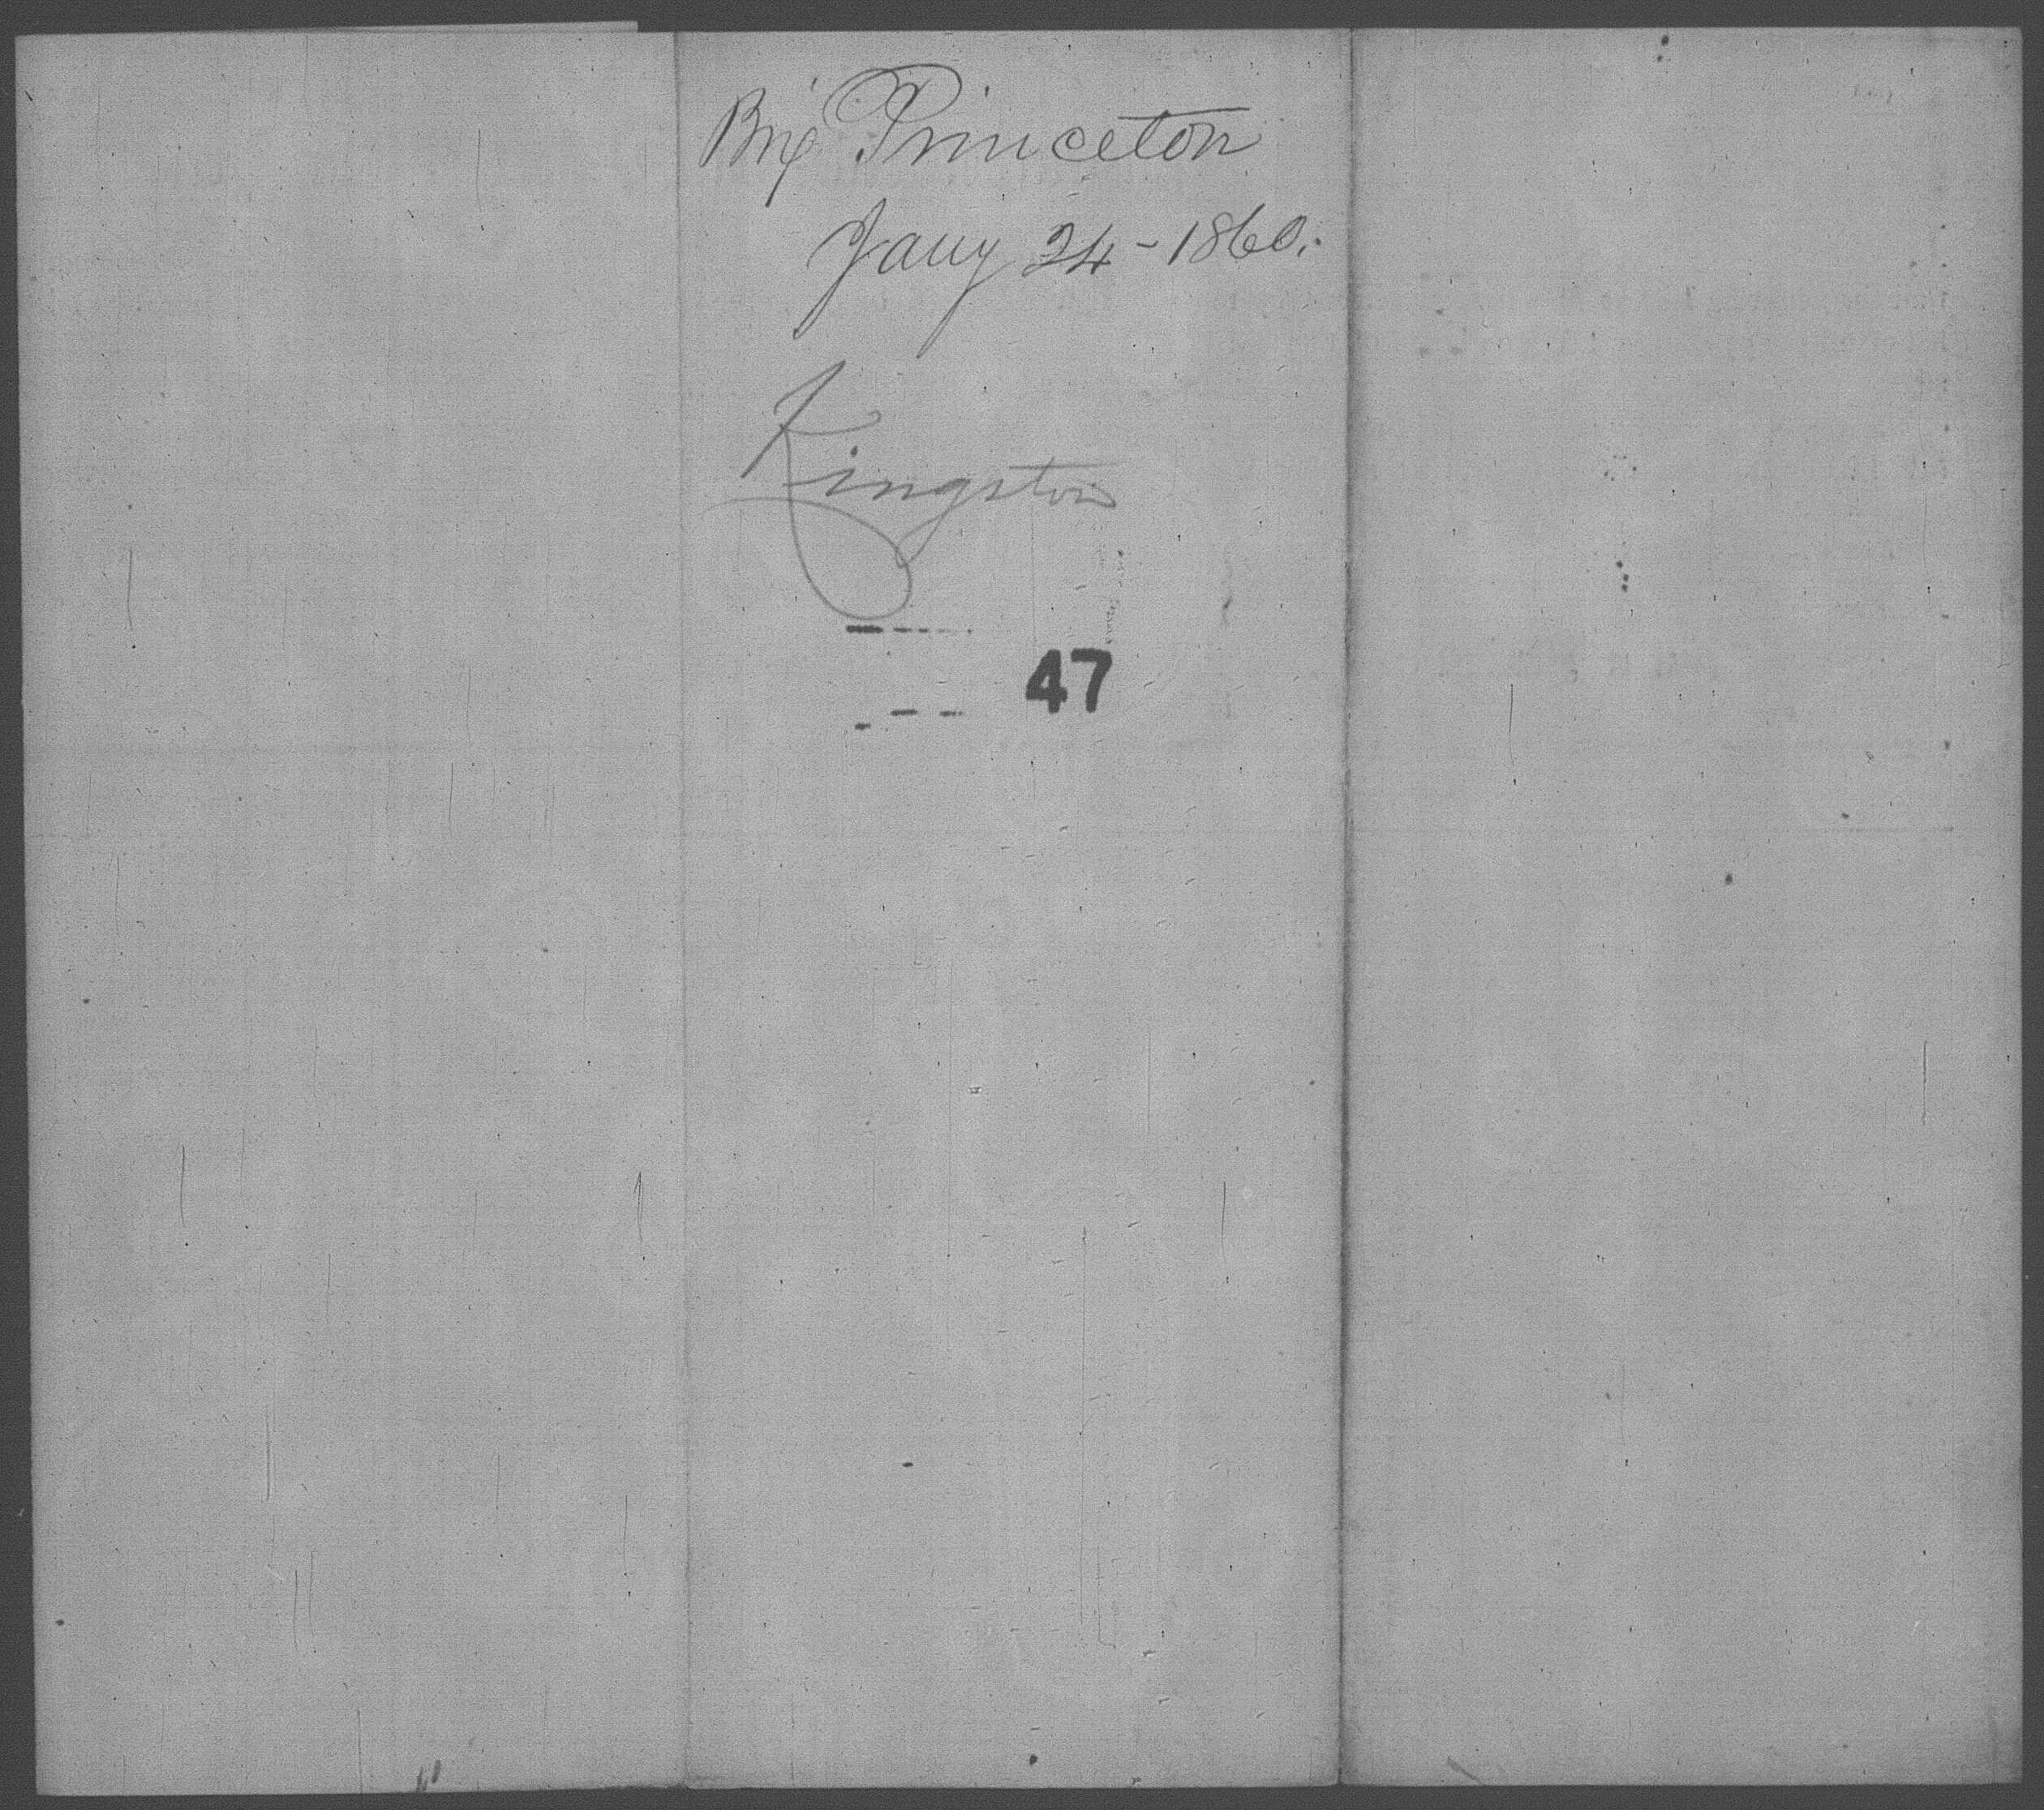 Brig Princeton
Jany 24-1860.
Kingston
47